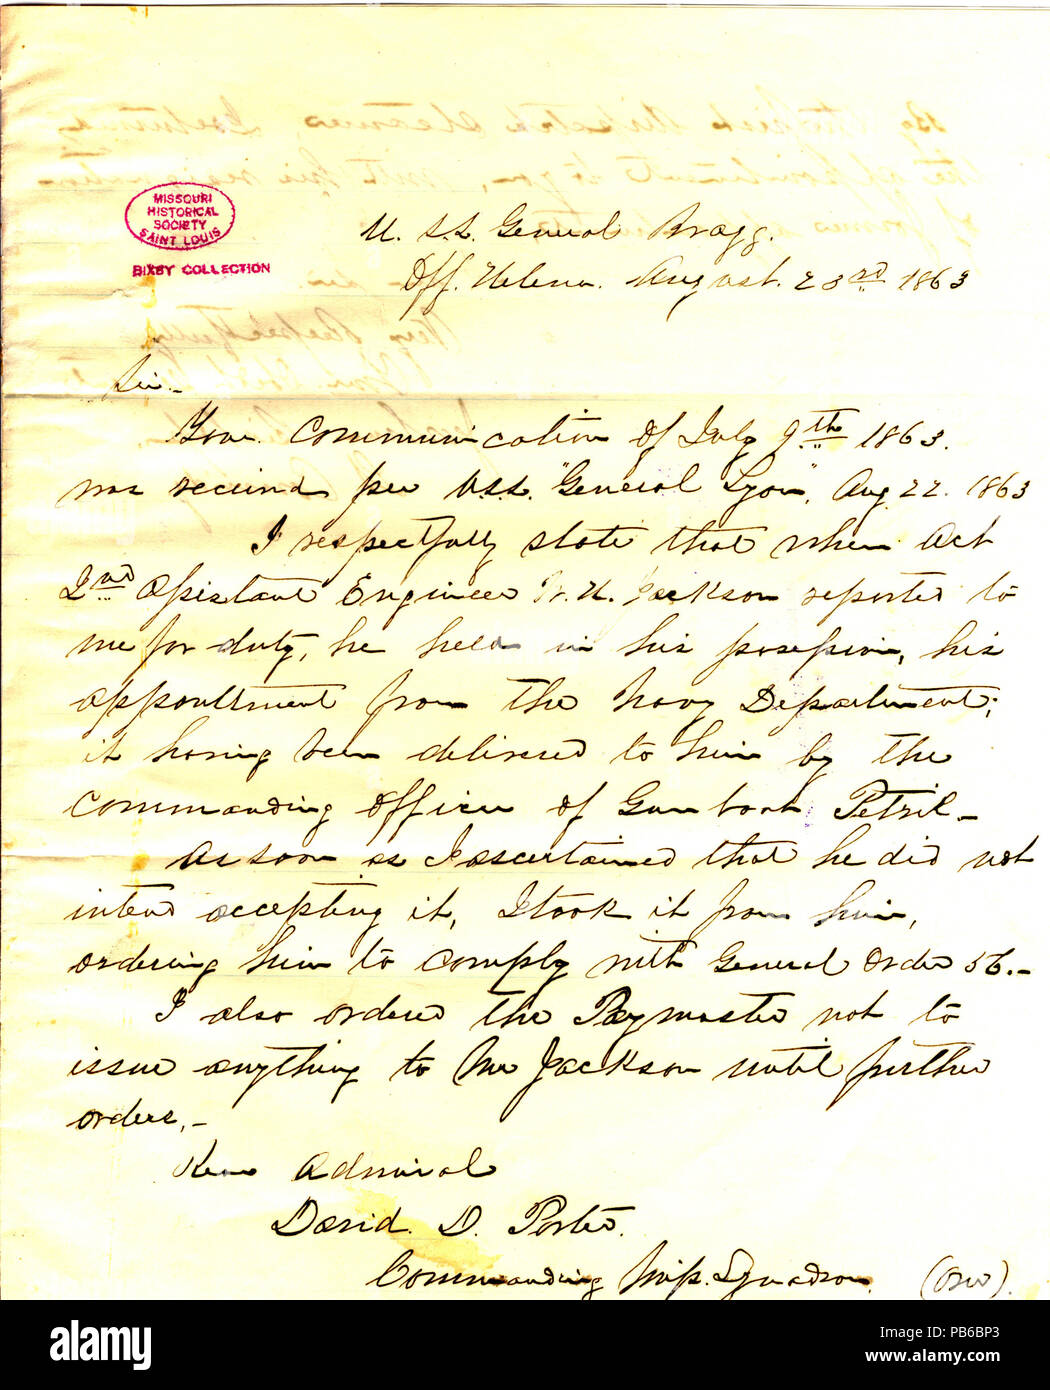 MISSOURI
HISTORICAL
SOCIETY
SAINT LOUIS
BIXBY COLLECTION
U. S. S. General Bragg.
Off. Helena. August. 23rd 1863
Sir.-
Your Communication of July 9th 1863.
was received per U.S.S. "General Lyon", Aug 22. 1863
I respectfully state that when Act
2nd Assistant Engineer Jackson reported to
me for duty, he held in his possession, his
appointment from the Navy Department;
it having been delivered to him by the
Commanding Officer of Gun boat Petrel-
As soon as I ascertained that he did not
intend accepting it, I took it from him,
ordering him to comply with General Order 56.-
I also ordered the Paymaster not to
issue anything to Mr Jackson until further
orders,-
Rear Admiral
David. D. Porter.
Commanding Miss. Squadron. (Over).
alamy
Image ID: PB6BP3
www.alamy.com